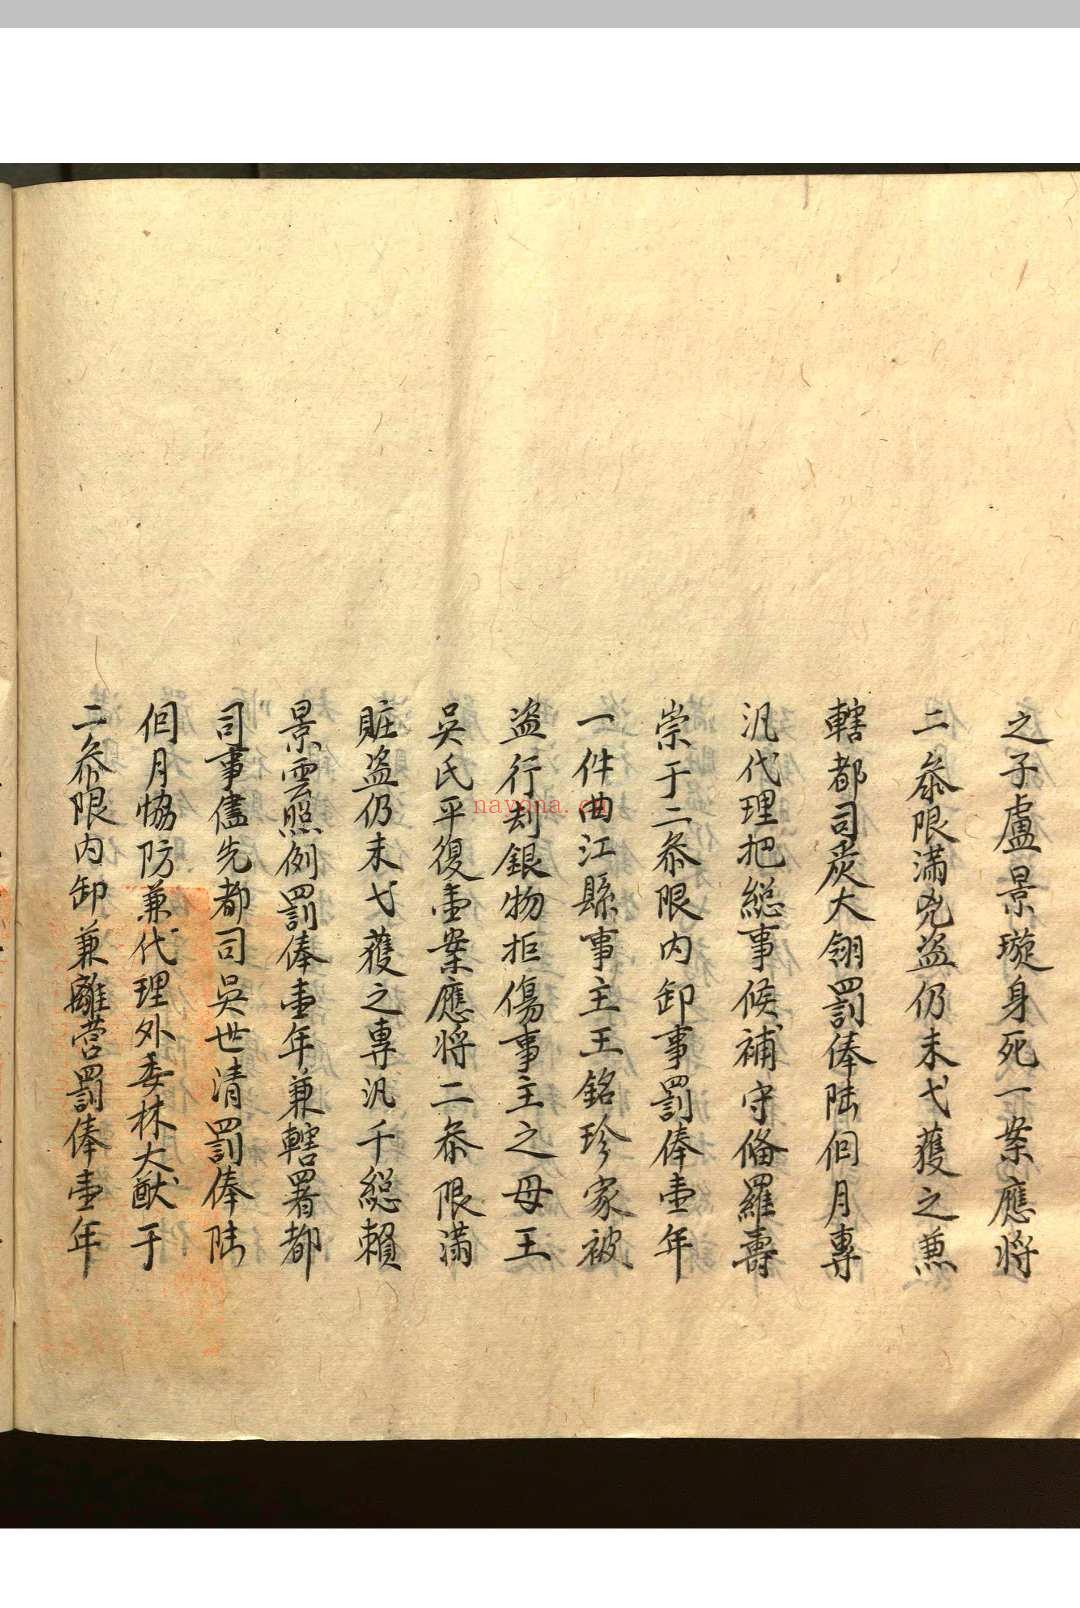 之子盧景璇身死一案應將
二叅限滿兇盗仍未弋獲之兼
轄都司炭大翎罰俸陸個月專
汛代理把総事候補守俻羅壽
崇于二叅限内卸事罰俸壹年
一件曲江縣事主王銘珍家被
盗行刦銀物拒傷事主之母王
吳氏平復壹案應將二叅限滿
賍盗仍未弋獲之專汛千総賴
景雲照例罰俸壹年兼轄署都
司事儘先都司吳世清罰俸陸
個月恊防兼代理外委林大猷于
二叅限内卸兼離营罰俸壹年
nayona.cn